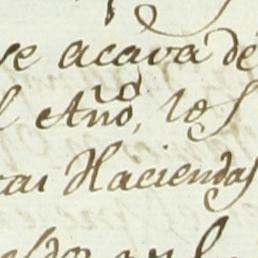 se acava de
l Año, los
tas Haciendas